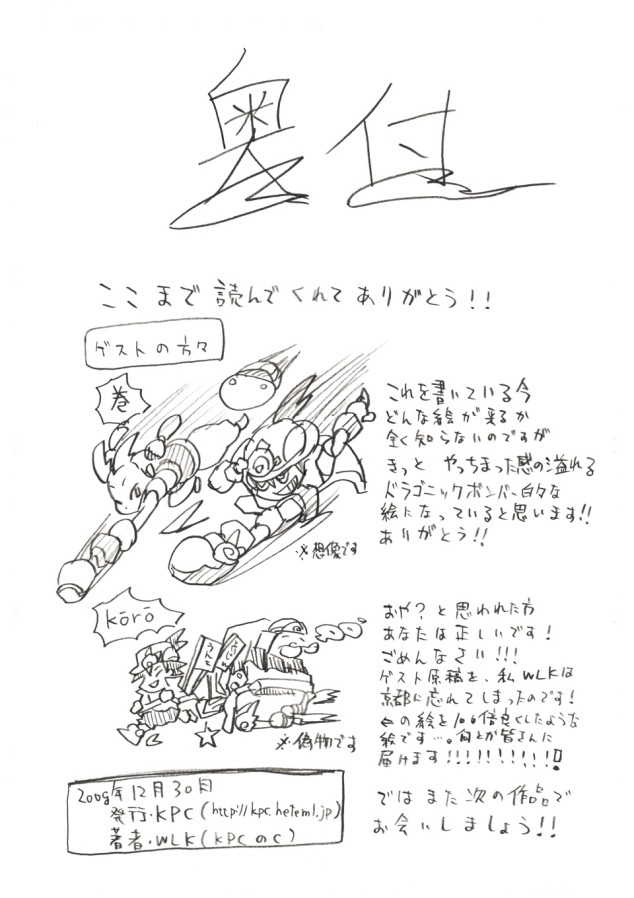 奥付
ここまで読んでくれてありがとう!!
ゲストの方々
巻
これを書いている今
どんな絵が来るか
全く知らないのですが
きっと やっちまった感の溢れる
ドラゴニックボンバー白々な
絵になっていると思います!!
ありがとう!!
※想像です
kōrō
おや?と思われた方
あなたは正しいです!
ごめんなさい!!!
ゲスト原稿を、私WLKは
京都に忘れてしまったのです!
⇐の絵を100倍良くしたような
絵です…。何とか皆さんに
届けます!!!!!!!!!!!
※偽物です
2009年12月30日
発行・KPC(http://kpc.heteml.jp)
著者・WLK(KPCのC)
ではまた次の作品で
お会いしましょう!!